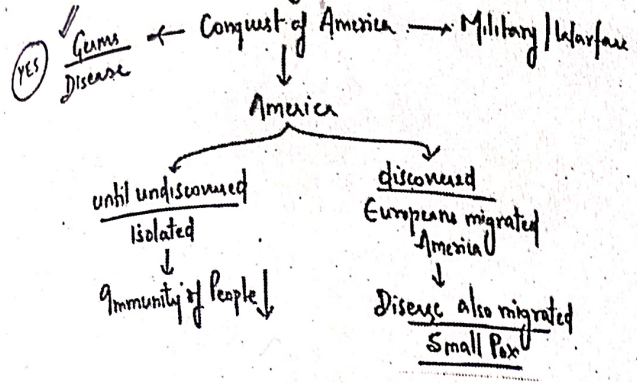 Conquest of America → Military/Warfare
✓ Germs ←
YES
Disease
↓
America
until undiscovered
Isolated
↓
Immunity of People ↓
discovered
Europeans migrated
America
↓
Disease also migrated
Small Pox